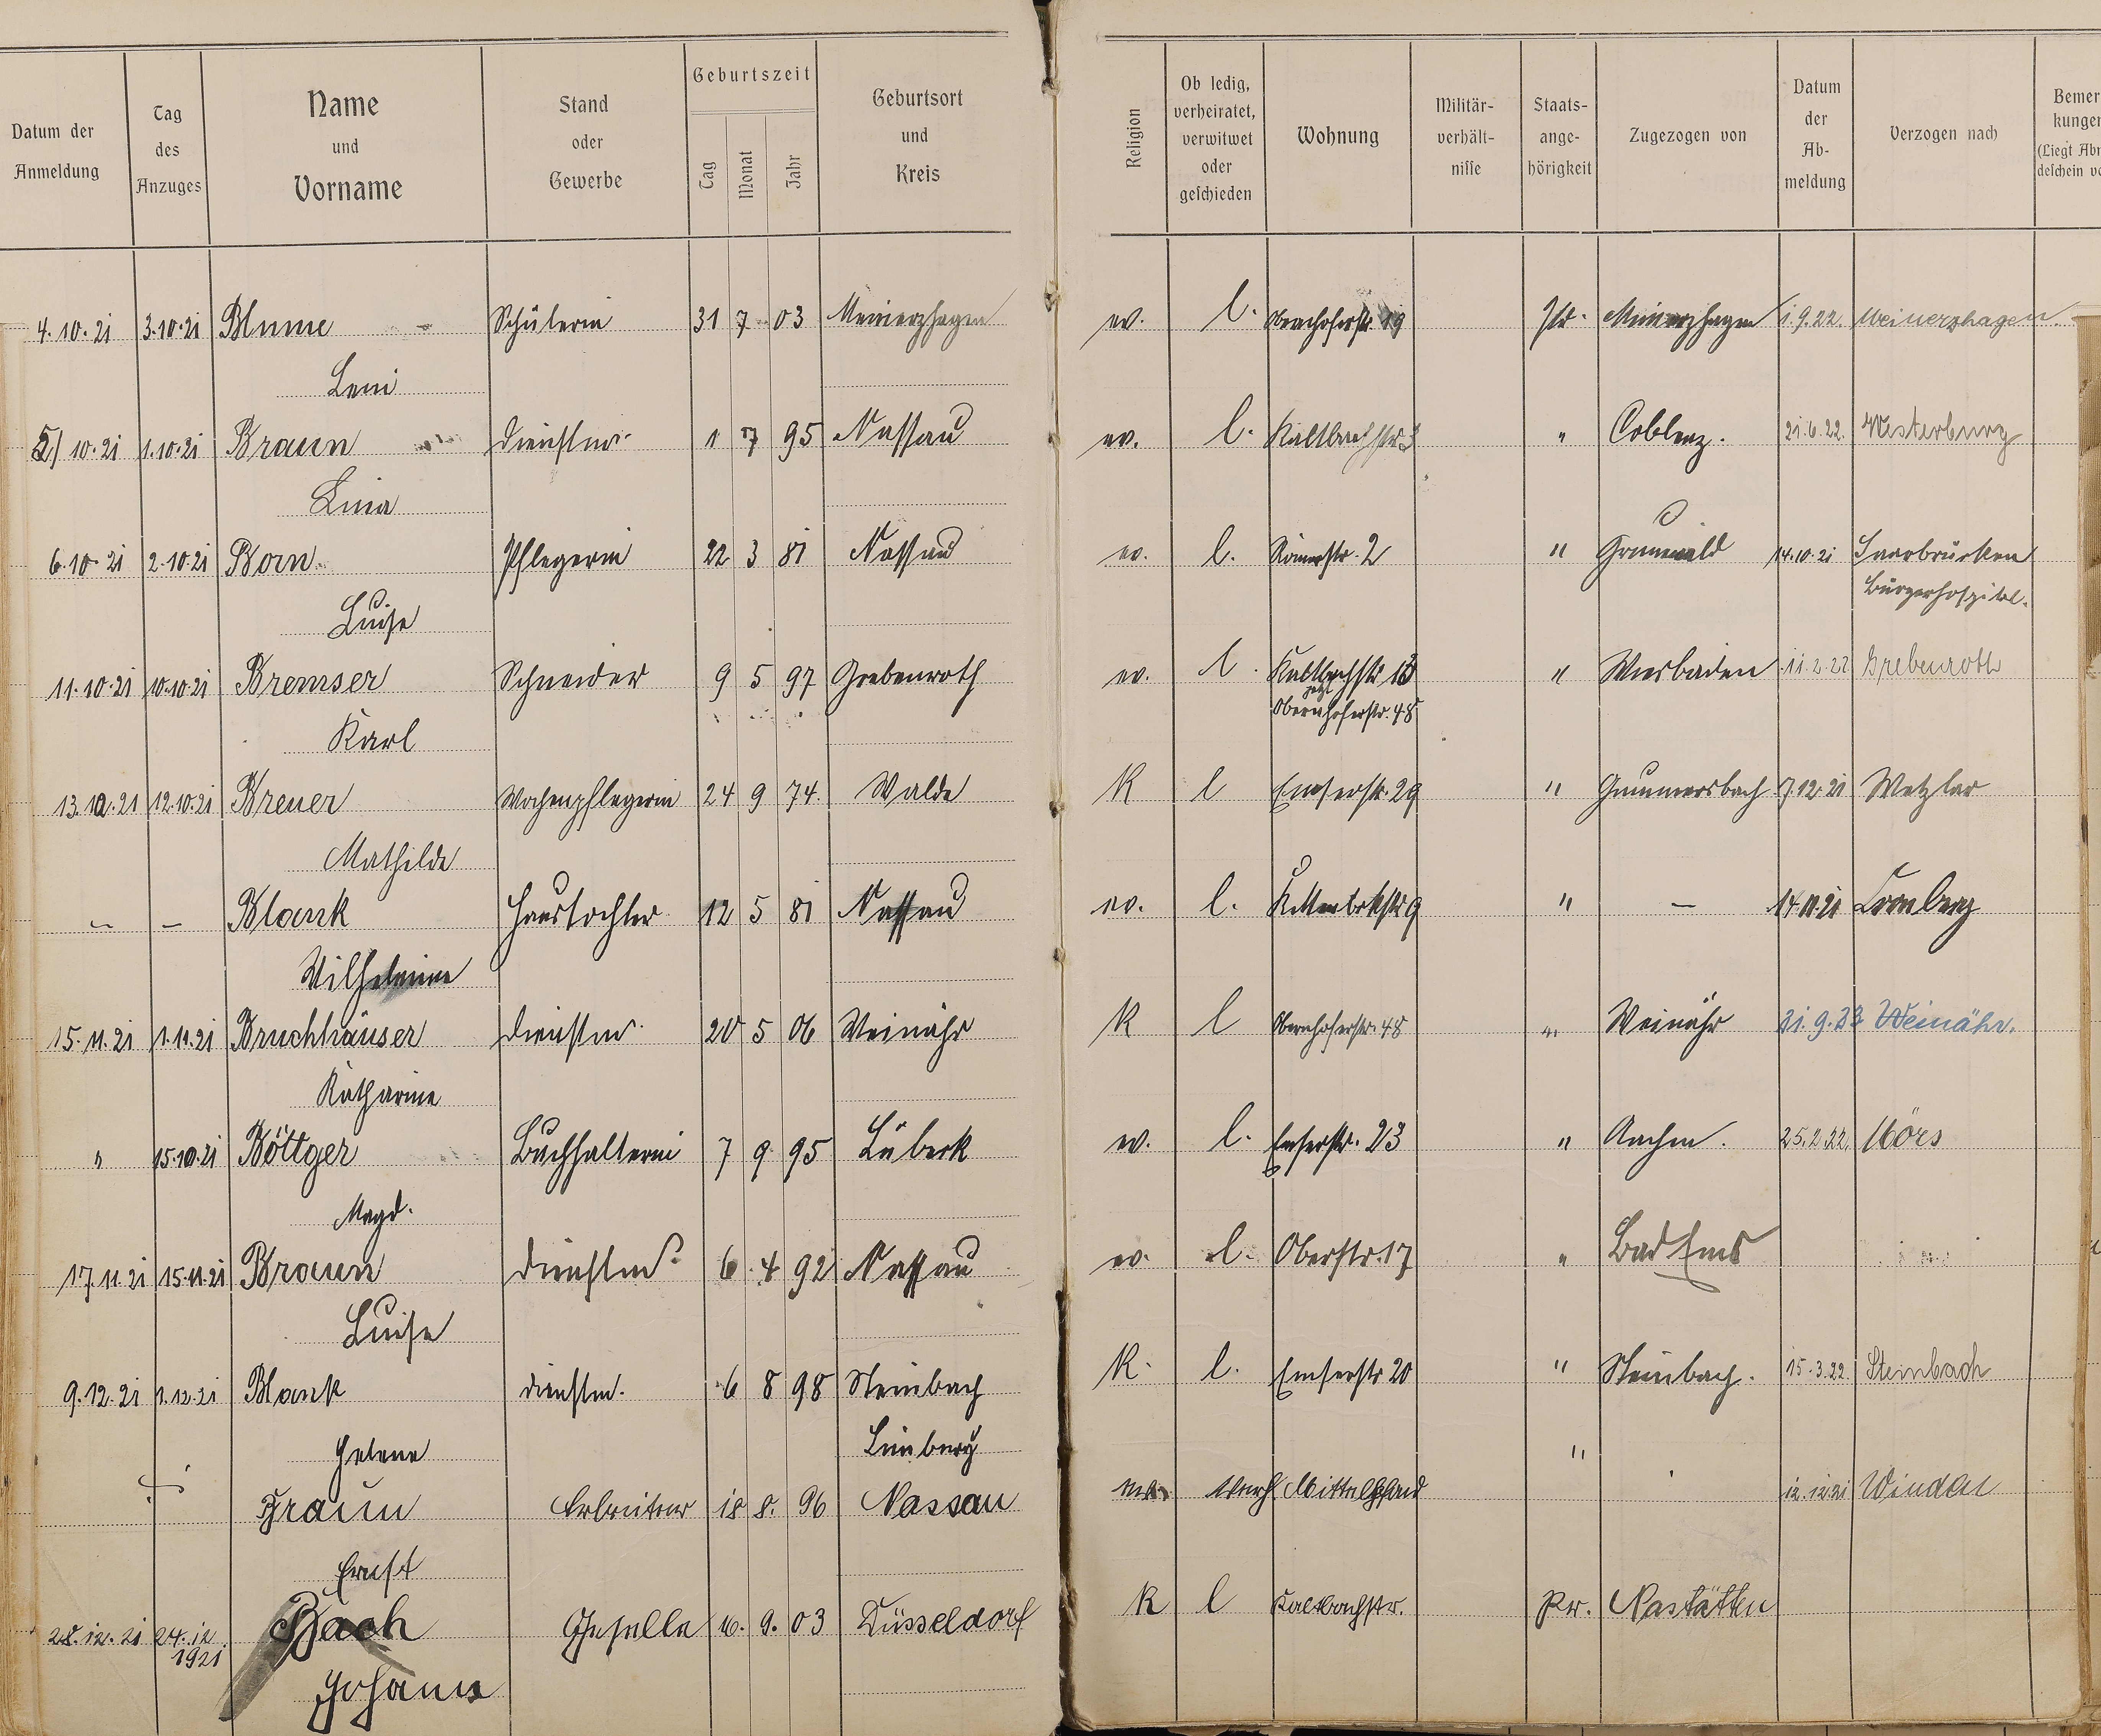 Datum der Anmeldung | Tag des Anzuges | Name und Vorname | Stand oder Gewerbe | Geburtszeit Tag Monat Jahr | Geburtsort und Kreis | Religion | Ob ledig, verheiratet, verwitwet oder geschieden | Wohnung | Militär-verhält-nisse | Staats-ange-hörigkeit | Zugezogen von | Datum der Ab-meldung | Verzogen nach | Bemer kungen (Liegt Abm deschein vo
4.10.21 3.10.21 Blume Schülerin 31 7 03 Meinerzhagen ev. l. Obernhoferstr. 19 Pr. Meinerzhagen 1.9.22. Meinerzhagen.
Leni
5/10.21 1.10.21 Braun Dienstm. 1 7 95 Nassau ev. l. Kaltbachstr. 3 " Coblenz. 21.6.22. Westerburg
Lina
6.10.21 2.10.21 Born Pflegerin 22 3 81 Nassau ev. l. Römerstr. 2 " Grunewald 14.10.21 Saarbrücken
Bürgerhospital.
Luise
11.10.21 10.10.21 Bremser Schneider 9 5 97 Grebenroth ev. l. Kaltbachstr 13 " Wiesbaden 11.2.22 Grebenroth
jetzt
Obernhoferstr. 48
Karl
13.10.21 12.10.21 Breuer Wochenpflegerin 24 9 74. Walde K l Emserstr. 29 " Gummersbach 7.12.21 Wetzlar
Mathilde
– – Blank Haustochter 12 5 81 Nassau ev. l. 9 " – 14.11.21 Cronberg
Wilhelmine
15.11.21 1.11.21 Bruchhäuser Dienstm. 20 5 06 Weinähr K l Obernhoferstr. 48 " Weinähr 21.9.23 Weinähr.
Katharine
" 15.10.21 Böttger Buchhalterin 7 9 95 Lübeck ev. l. Emserstr. 23 " Aachen. 25.2.22. Mörs
Magd.
17.11.21 15.11.21 Braun Dienstm. 6 4 92 Nassau ev. l. Oberstr. 17 " Bad Ems
Luise
9.12.21 1.12.21 Blank Dienstm. 6 8 98 Steinbach K. l. Emserstr 20 " Steinbach. 15.3.22. Steinbach
Helene Limburg "
Braun Arbeiter 18 8. 96 Nassau ev. Verh Mittelpfad 12.12.21 Winden
Ernst
28.12.21 24.12.1921 Bach Geselle 16. 9. 03 Düsseldorf K l Kaltbachstr. Pr. Nastätten
Johann